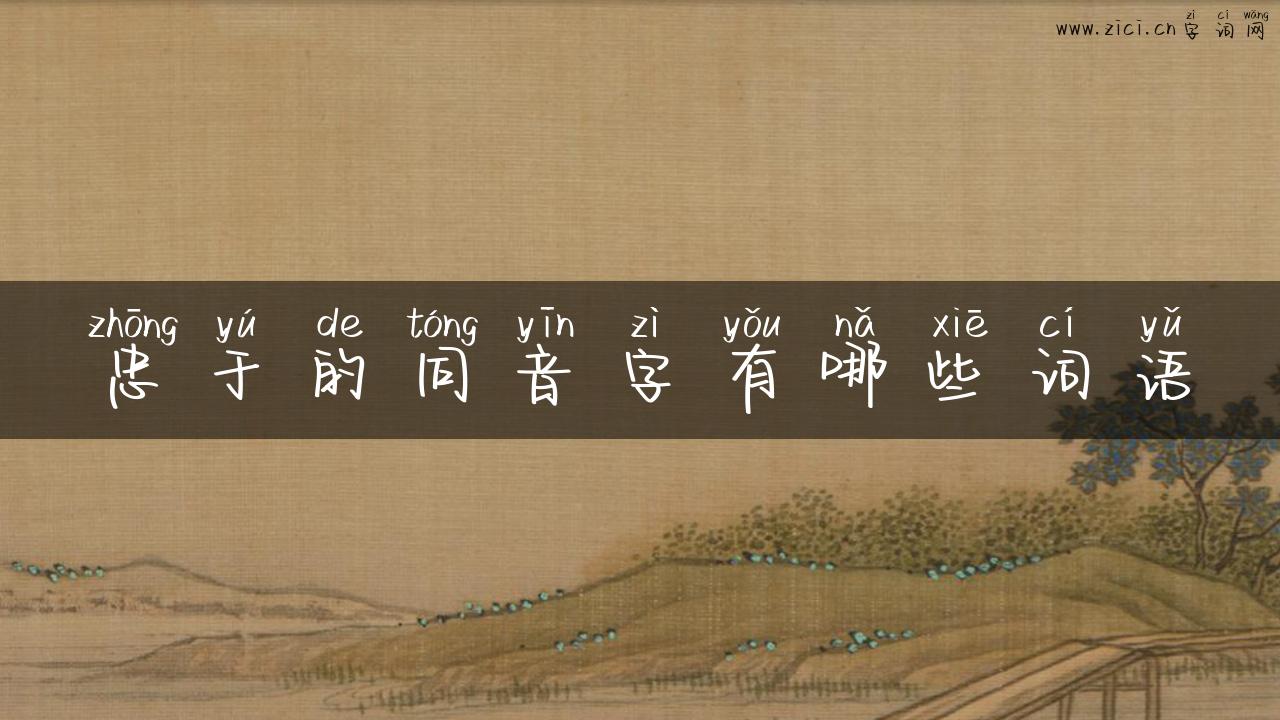 zì cí wǎng
www.zici.cn字词网
zhōng yú de tóng yīn zì yǒu nǎ xiē cí yǔ
忠于的同音字有哪些词语